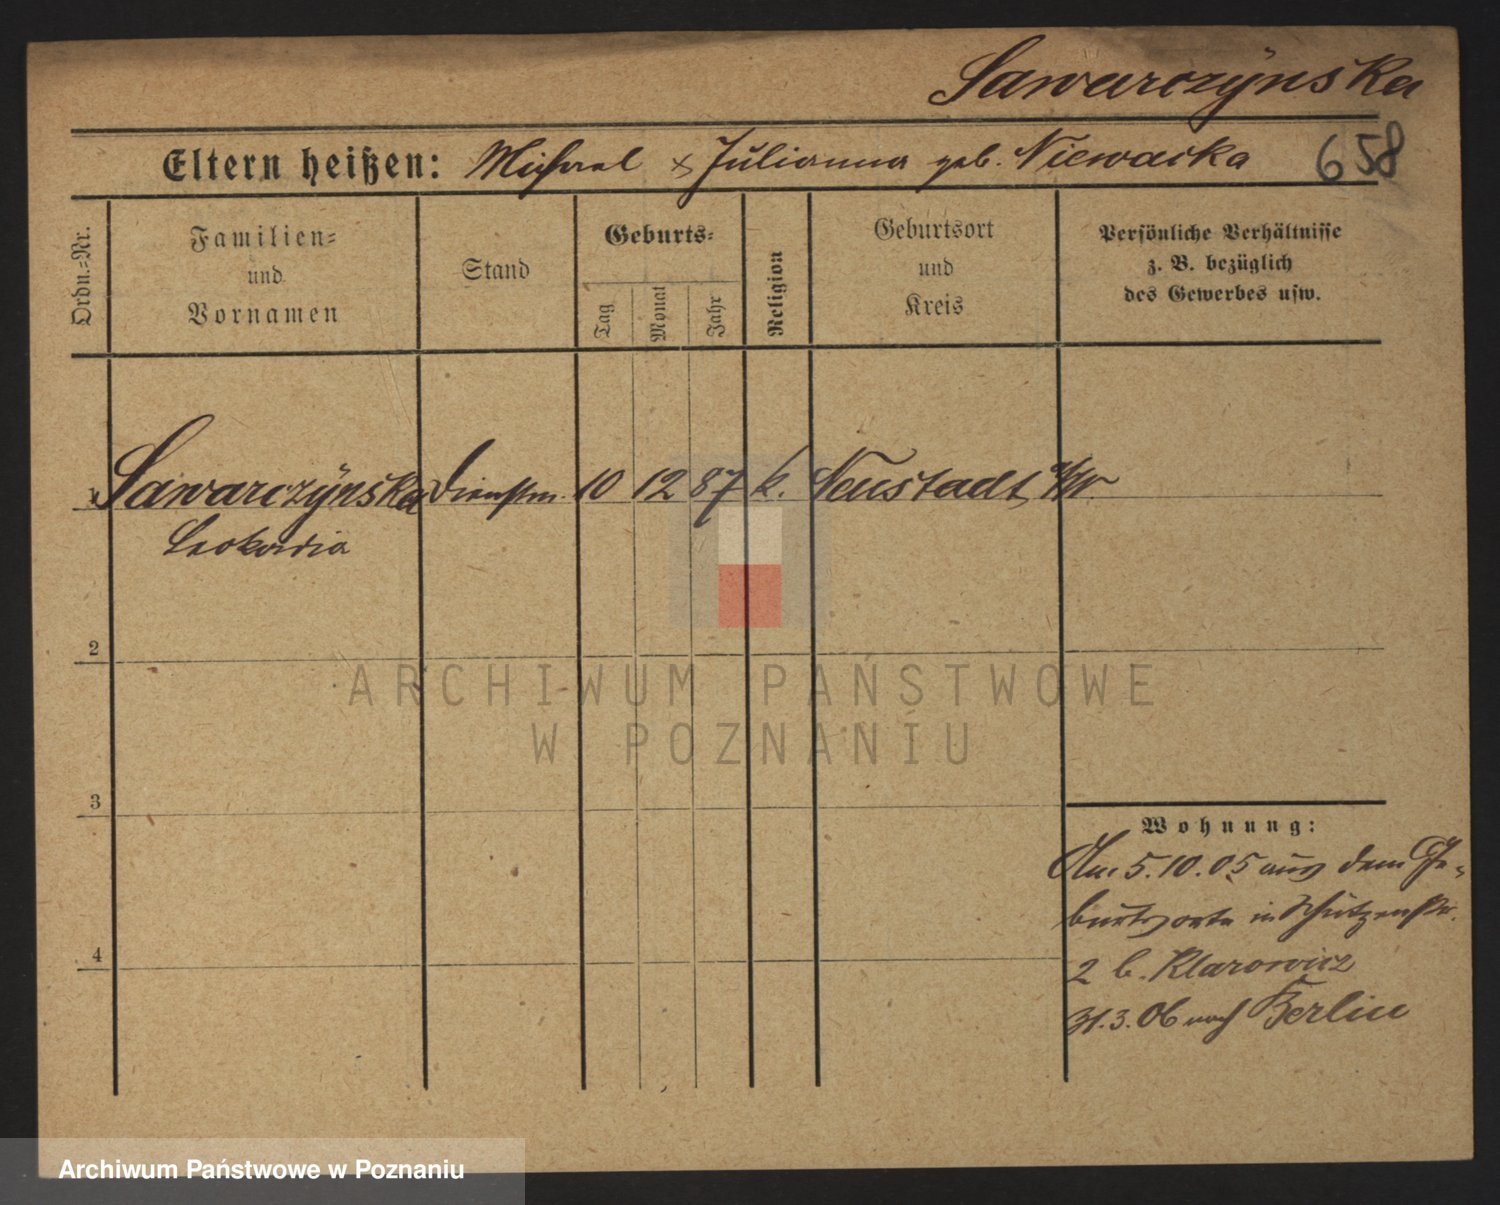 Sawarczÿnska
Eltern heißen: Michael & Julianna geb. Niewacka 658
Ordn.-Nr.
Familien-
und
Vornamen
Stand
Geburts-
Tag
Monat
Jahr
Religion
Geburtsort
und
Kreis
Persönliche Verhältnisse
z. B. bezüglich
des Gewerbes usw.
1 Sawarczÿnska Dienstm. 10 12 87 k. Neustadt, a/W.
Leokadia
2
ARCHIWUM PAŃSTWOWE
W POZNANIU
3
Wohnung:
Am 5.10.05 aus dem Ge-
burtsorte in Schützenstr.
2 b. Klarowicz
4
31.3.06 nach Berlin
Archiwum Państwowe w Poznaniu